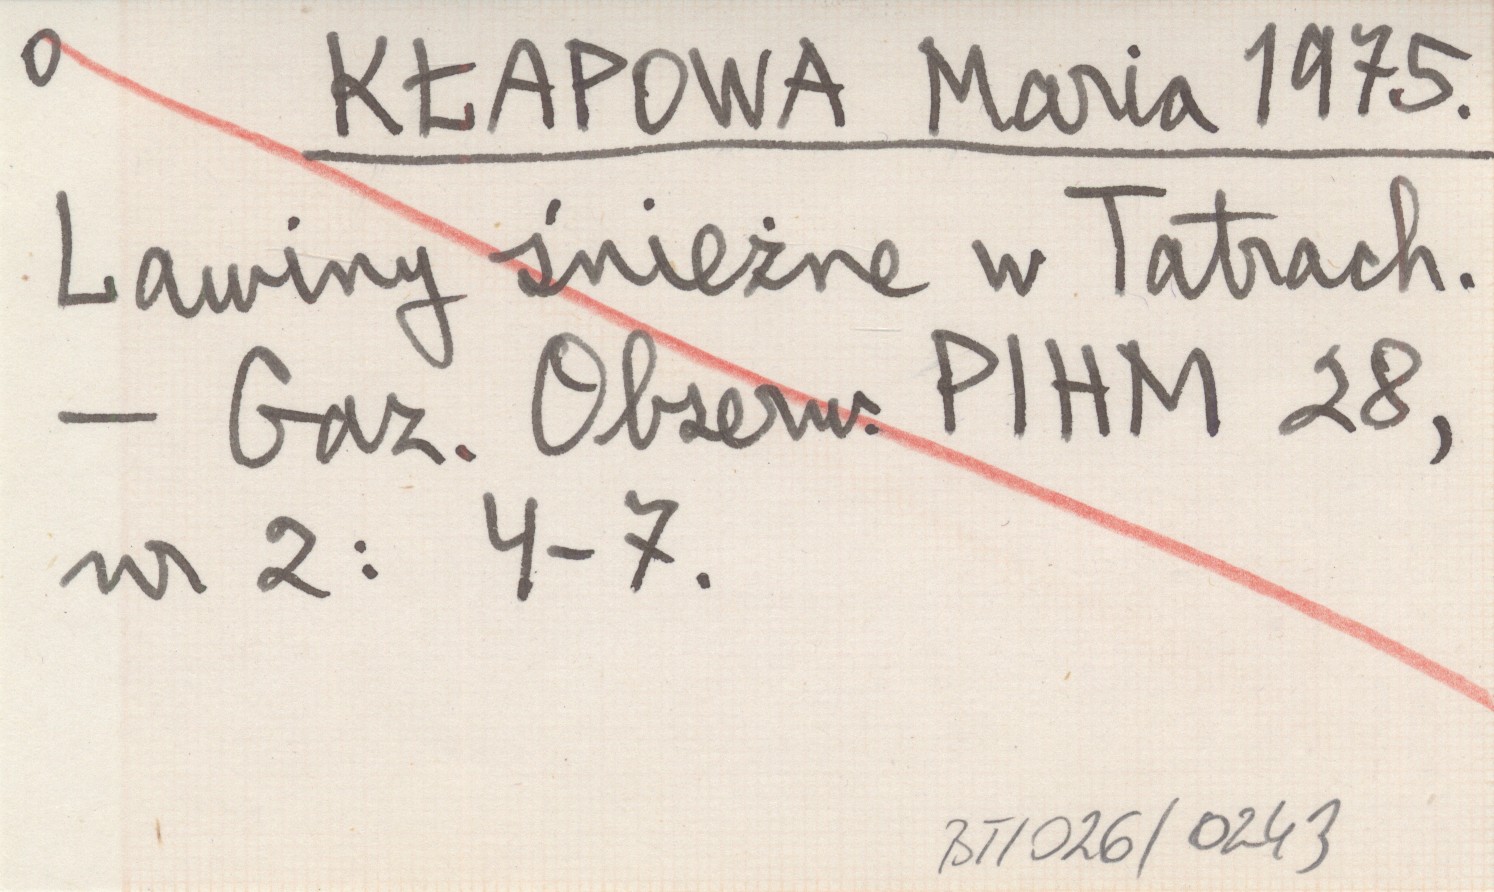 o KŁAPOWA Maria 1975.
Lawiny śnieżne w Tatrach.
— Gaz. Obserw. PIHM 28,
nr 2: 4-7.
BT/026/0243